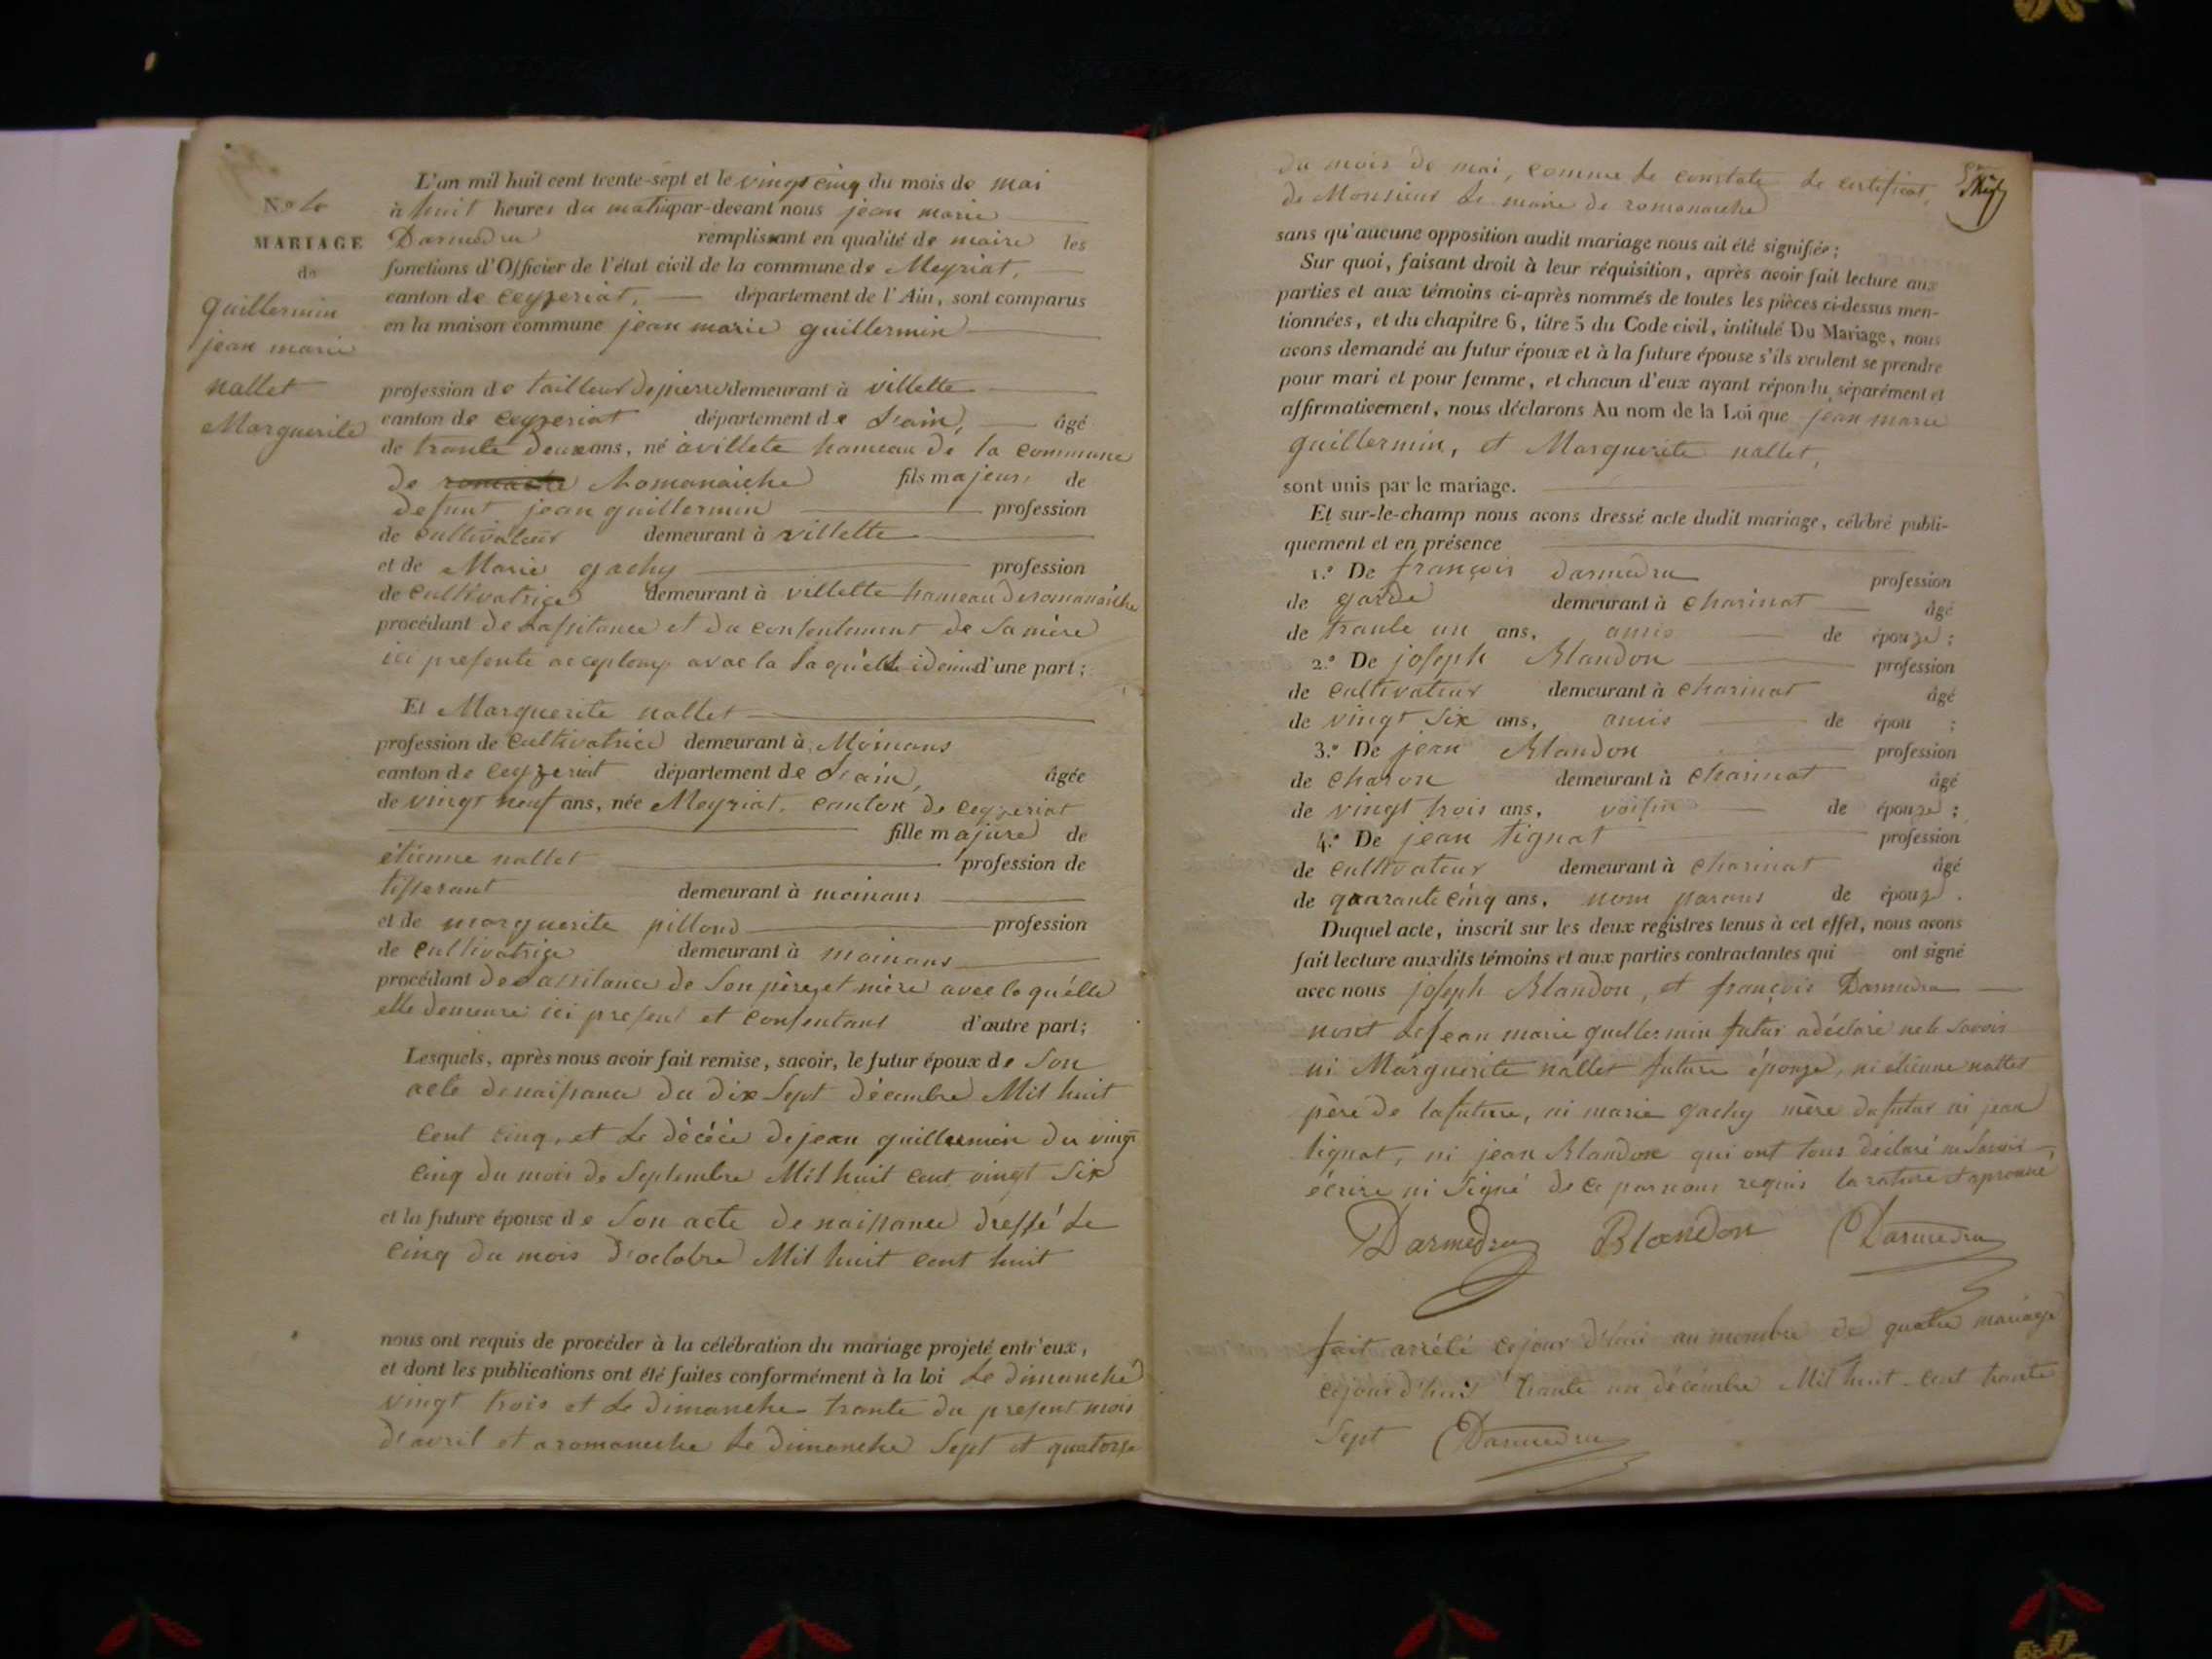 L'an mil huit cent trente-sept et le vingt cinq du mois de mai
à huit heures du matin par-devant nous jean marie
Darmedru remplissant en qualité de maire les
fonctions d'Officier de l'état civil de la commune de Meyriat,
canton de Ceyzeriat, département de l'Ain, sont comparus
en la maison commune jean marie guillermin
N.o
MARIAGE
de
guillermin
jean marie
nallet
Marguerite
profession de tailleur de pierre demeurant à villette
canton de Ceyzeriat département de l'ain, âgé
de trante deux ans, né à villete hameau de la commune
de Romanaiche fils majeur, de
defunt jean guillermin profession
de cultivateur demeurant à villette
et de Marie gachy profession
de cultivatrice demeurant à villette hameau de romanaiche
procédant de et du consentement de sa mère
ici presente d'une part;
Et Marguerite nallet
profession de cultivatrice demeurant à Moinans
canton de Ceyzeriat département de l'ain, âgée
de vingt neuf ans, née Meyriat, canton de Ceyzeriat
fille majure de
étienne nallet profession de
tisserant demeurant à moinans
et de marguerite pilloud profession
de cultivatrige demeurant à moinans
procédant de de son père et mère avec la quélle
elle demeure ici present et consentant d'autre part;
Lesquels, après nous avoir fait remise, savoir, le futur époux de son
acte de naissance du dix sept décembre Mil huit
cent cinq, et le de jean guillermin du vingt
cinq du mois de septembre Mil huit cent vingt six
et la future épouse de son acte de naissance dressé le
cinq du mois d'octobre Mil huit cent huit
nous ont requis de procéder à la célébration du mariage projeté entr'eux,
et dont les publications ont été faites conformément à la loi le dimanche
vingt trois et le dimanche trante du present mois
d'avril et a romaneche le dimanche sept et quatorze
du mois de mai, comme le constate le certificat,
de Monsieur le maire de romanaiche
sans qu'aucune opposition audit mariage nous ait été signifiée;
Sur quoi, faisant droit à leur réquisition, après avoir fait lecture aux
parties et aux témoins ci-après nommés de toutes les pièces ci-dessus men-
tionnées, et du chapitre 6, titre 5 du Code civil, intitulé Du Mariage, nous
avons demandé au futur époux et à la future épouse s'ils veulent se prendre
pour mari et pour femme, et chacun d'eux ayant répondu séparément et
affirmativement, nous déclarons Au nom de la Loi que jean marie
guillermin, et Marguerite nallet,
sont unis par le mariage.
Et sur-le-champ nous avons dressé acte dudit mariage, célébré publi-
quement et en présence
1.o De françois darmedru profession
de garde demeurant à charinat âgé
de trante un ans, amis de épouze;
2.o De joseph Blandon profession
de cultivateur demeurant à charinat âgé
de vingt six ans, amis de épou ;
3.o De jean Blandon profession
de charon demeurant à charinat âgé
de vingt trois ans, voisin de épouze;
4.o De jean tignat profession
de cultivateur demeurant à charinat âgé
de quarante cinq ans, nom parans de épouze.
Duquel acte, inscrit sur les deux registres tenus à cet effet, nous avons
fait lecture auxdits témoins et aux parties contractantes qui ont signé
avec nous joseph Blandon, et françois Darmedru
jean marie guillermin futur a déclaré ne le savoir
ni Marguerite nallet future épouze, ni etienne nallet
père de la future, ni marie gachy mère du futur ni jean
tignat, ni jean Blandon qui ont tous déclaré ne savoir
écrire ni signé de ce par nous requis la rature aprouvé
Darmedru Blandon Darmedru
fait arrété cejour d'hui au nombre de quatre mariage
cejour d'hui trante un décembre Mil huit cent trante
sept Darmedru